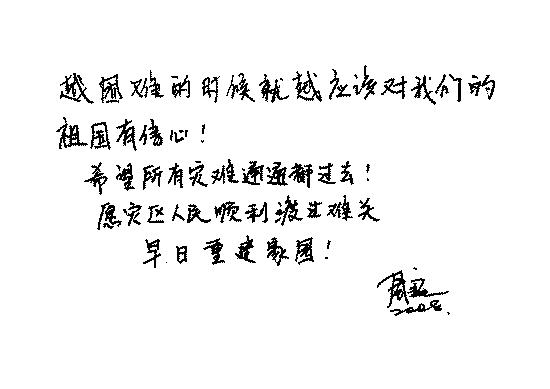 越困难的时候就越应该对我们的
祖国有信心！
希望所有灾难通通都过去！
愿灾区人民顺利渡过难关
早日重建家园！
2008.